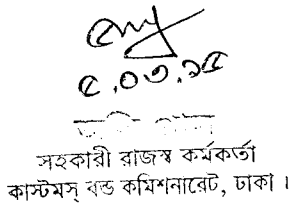 ৫.০৩.১৫
সহকারী রাজস্ব কর্মকর্তা
কাস্টমস্ বন্ড কমিশনারেট, ঢাকা ।